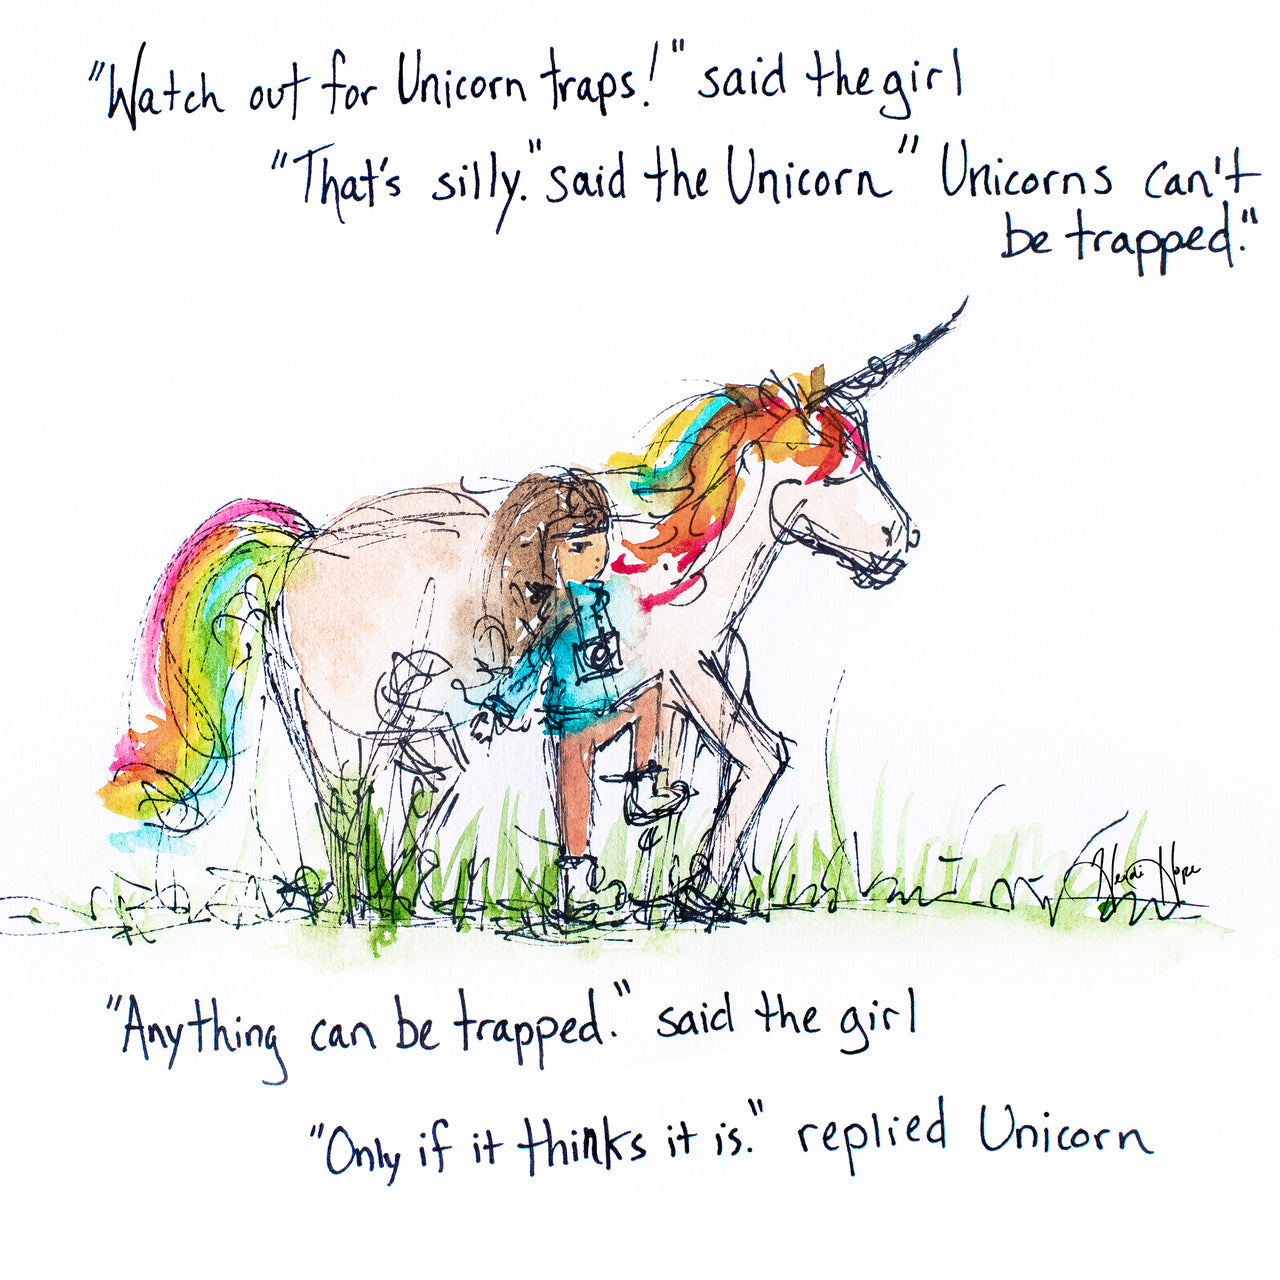 "Watch out for Unicorn traps!" said the girl
"That's silly." said the Unicorn "Unicorns can't
be trapped."
Heidi Hope
"Anything can be trapped." said the girl
"Only if it thinks it is." replied Unicorn